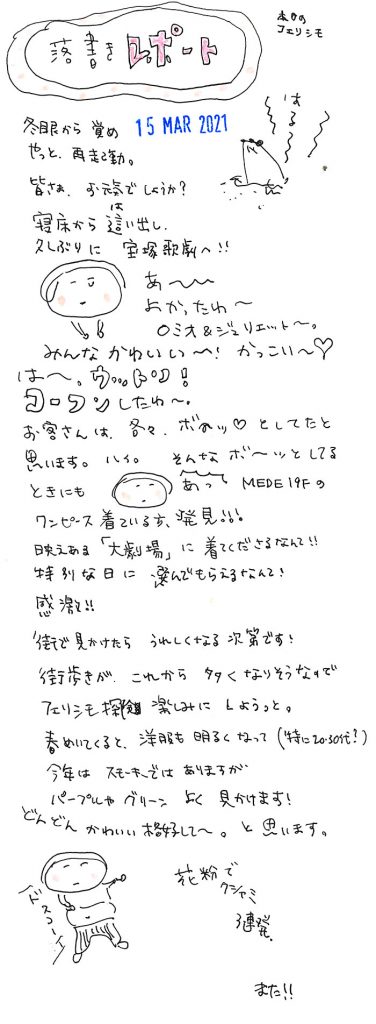 落書きレポート
本日の
フェリシモ
はる
冬眠から覚め
15 MAR 2021
やっと、再起動。
皆さま、お元気でしょうか?
寝床から這い出し、
は
久しぶりに 宝塚歌劇へ!!
あ〜〜
よかったわ〜
ロミオ&ジュリエット〜。
みんな かわいい〜! かっこい〜♡
は〜。ウットリ!
コーフンしたわ〜。
お客さんは、各々、ボーッ♡としてたと
思います。ハイ。 そんな ボ〜ッとしてる
ときにも あっ MEDE19Fの
ワンピース着ている方、発見!!!
映えある「大劇場」に着てくださるなんて!!
特別な日に 選んでもらえるなんて!
感激!!
街で見かけたら うれしくなる次第です!
街歩きが、これから 多くなりそうなので
フェリシモ探し 楽しみに しようっと。
春めいてくると、洋服も 明るくなって(特に20-30代?)
今年は スモーキーではありますが
パープルや グリーン よく 見かけます!
どんどん かわいい 格好して〜。と思います。
ドスコーイ
花粉で
クシャミ
3連発。
また!!